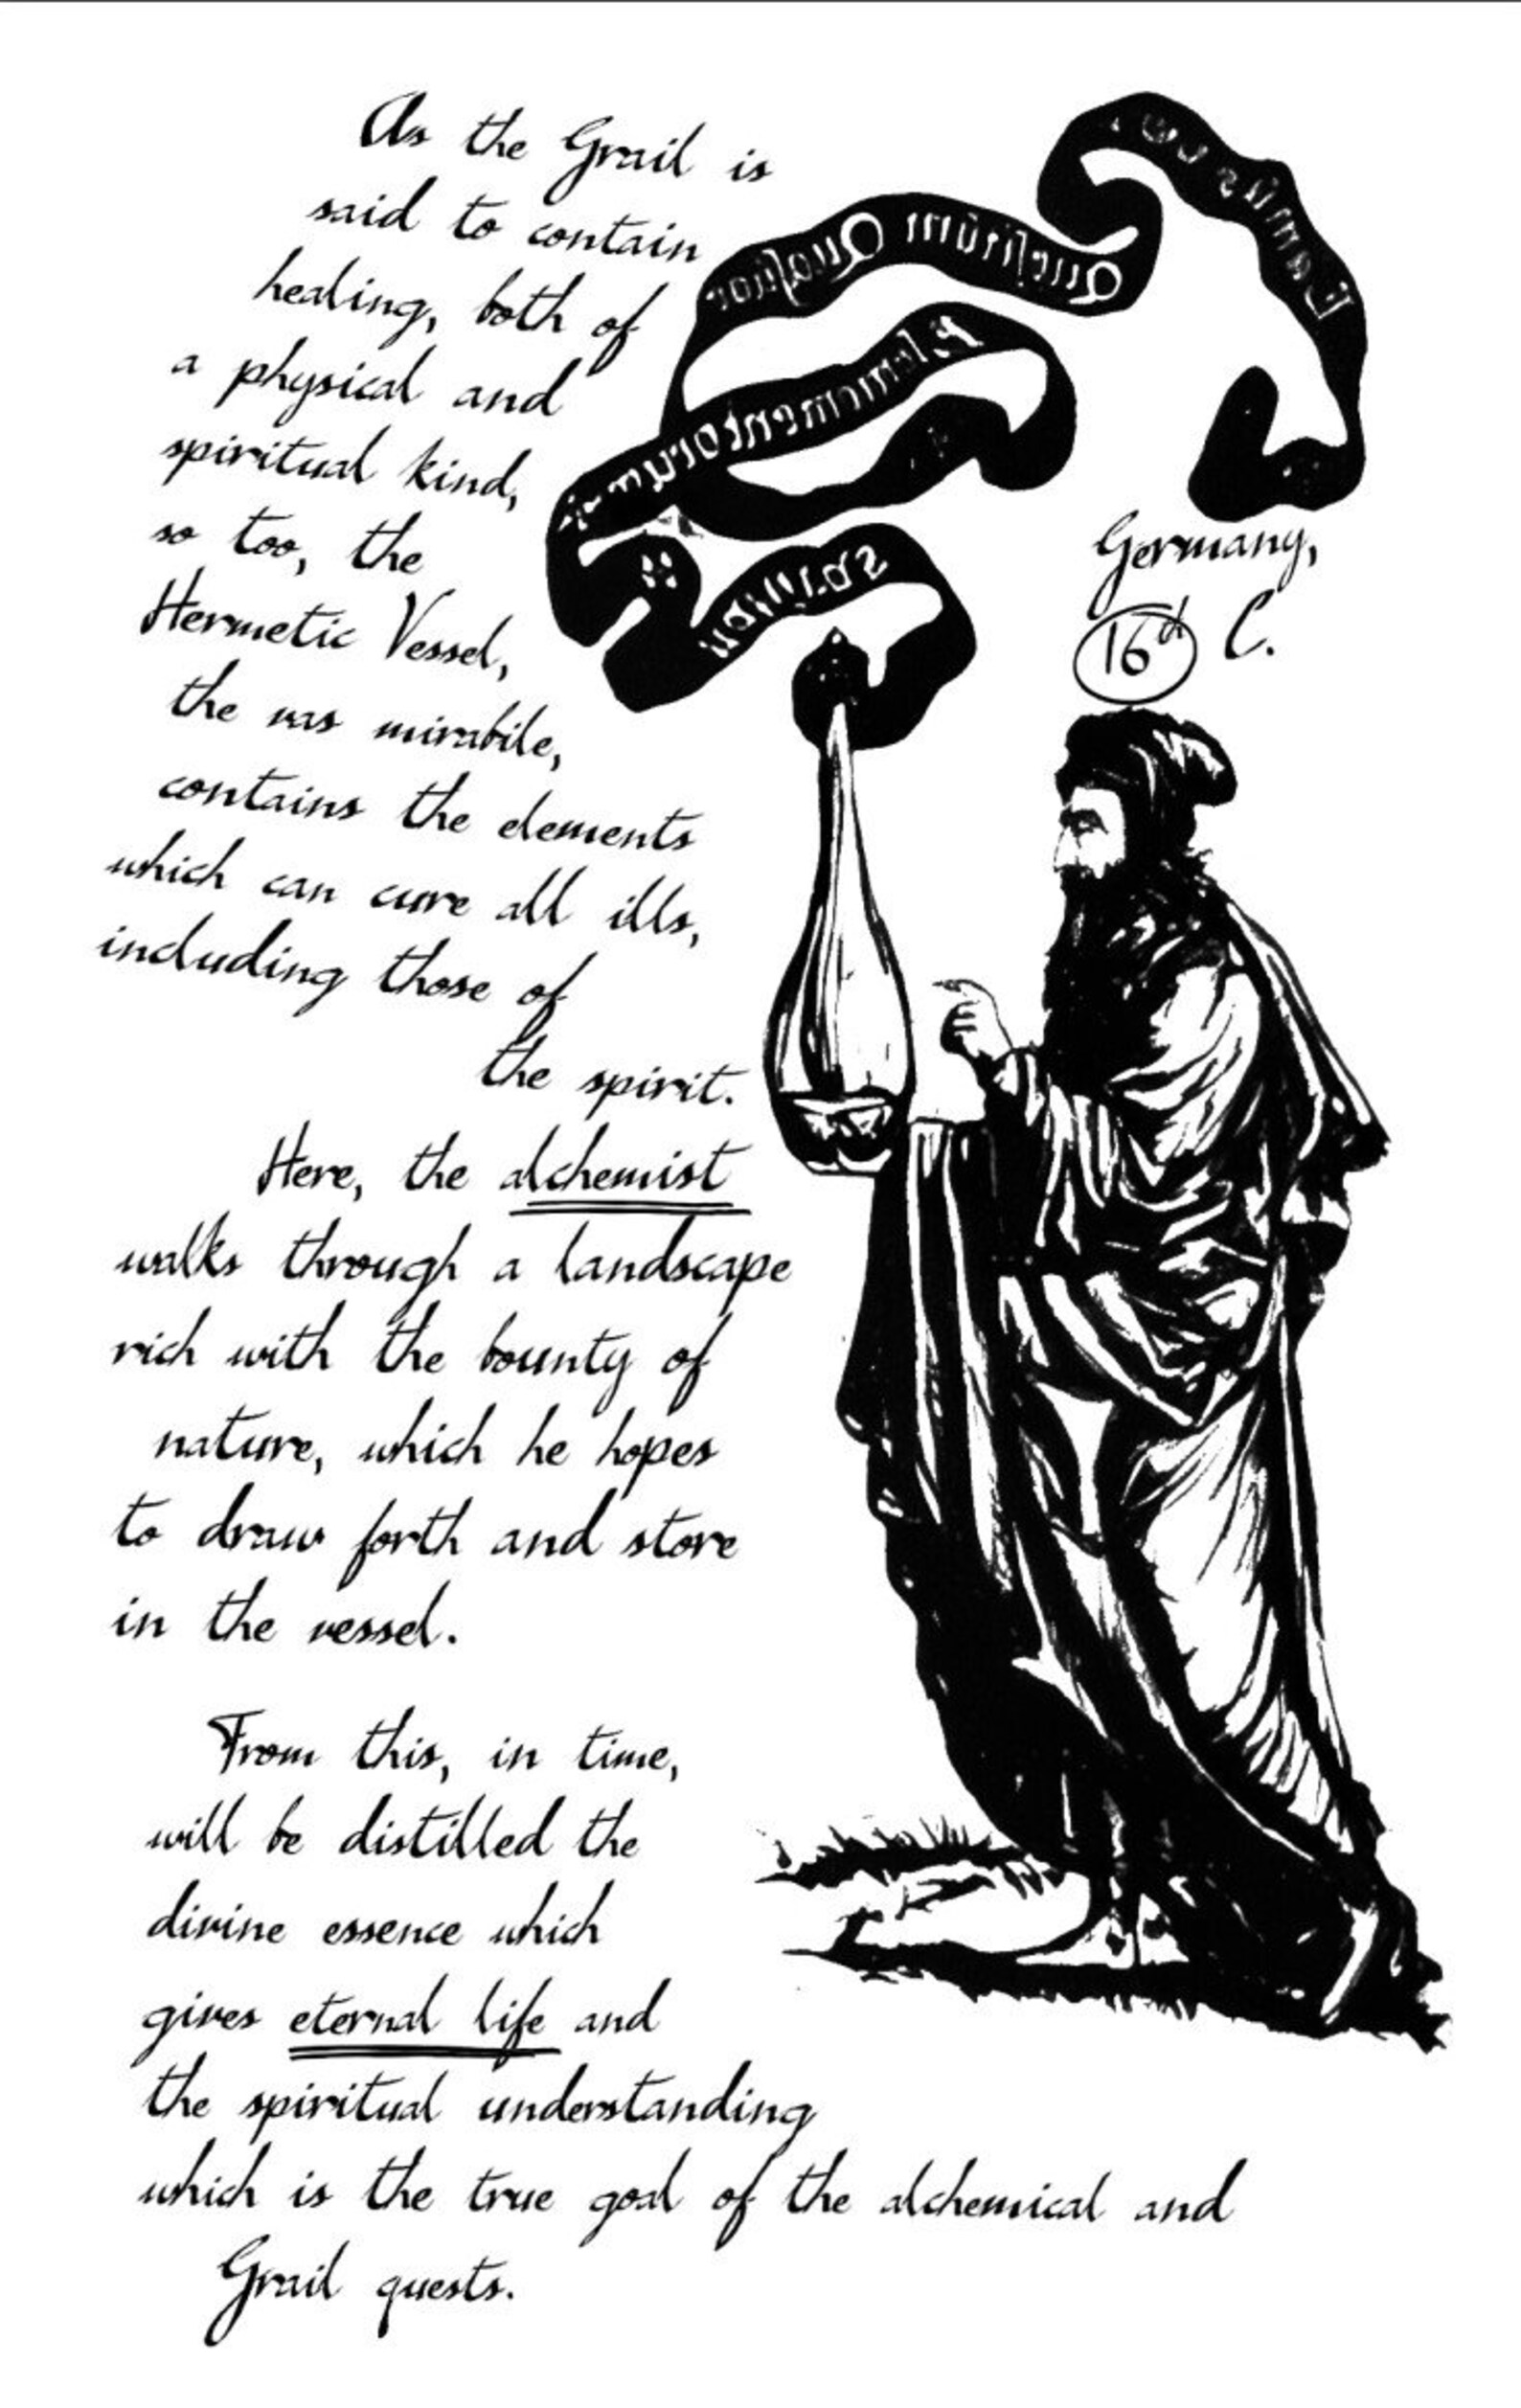 As the Grail is
said to contain
healing, both of
a physical and
spiritual kind,
so too, the
Hermetic Vessel,
the vas mirabile,
contains the elements
which can cure all ills,
including those of
the spirit.
Here, the alchemist
walks through a landscape
rich with the bounty of
nature, which he hopes
to draw forth and store
in the vessel.
From this, in time,
will be distilled the
divine essence which
gives eternal life and
the spiritual understanding
which is the true goal of the alchemical and
Grail quests.
Eamus
Quesitum Quatuor
Elementorum
Germany,
16th C.